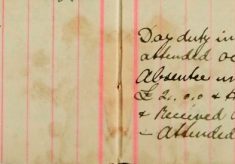 Day duty in
attended
Absentee
£ 2,,0,,0 &
& Received
– Attended